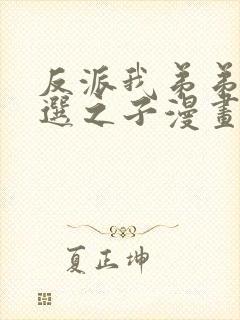 反派我弟弟
選之子漫畫
夏正坤